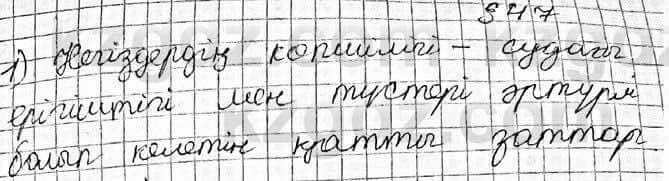 §47
1) Негіздердің көпшілігі – судағы
ерігіштігі мен түстері әртүрлі
болып келетін қатты заттар